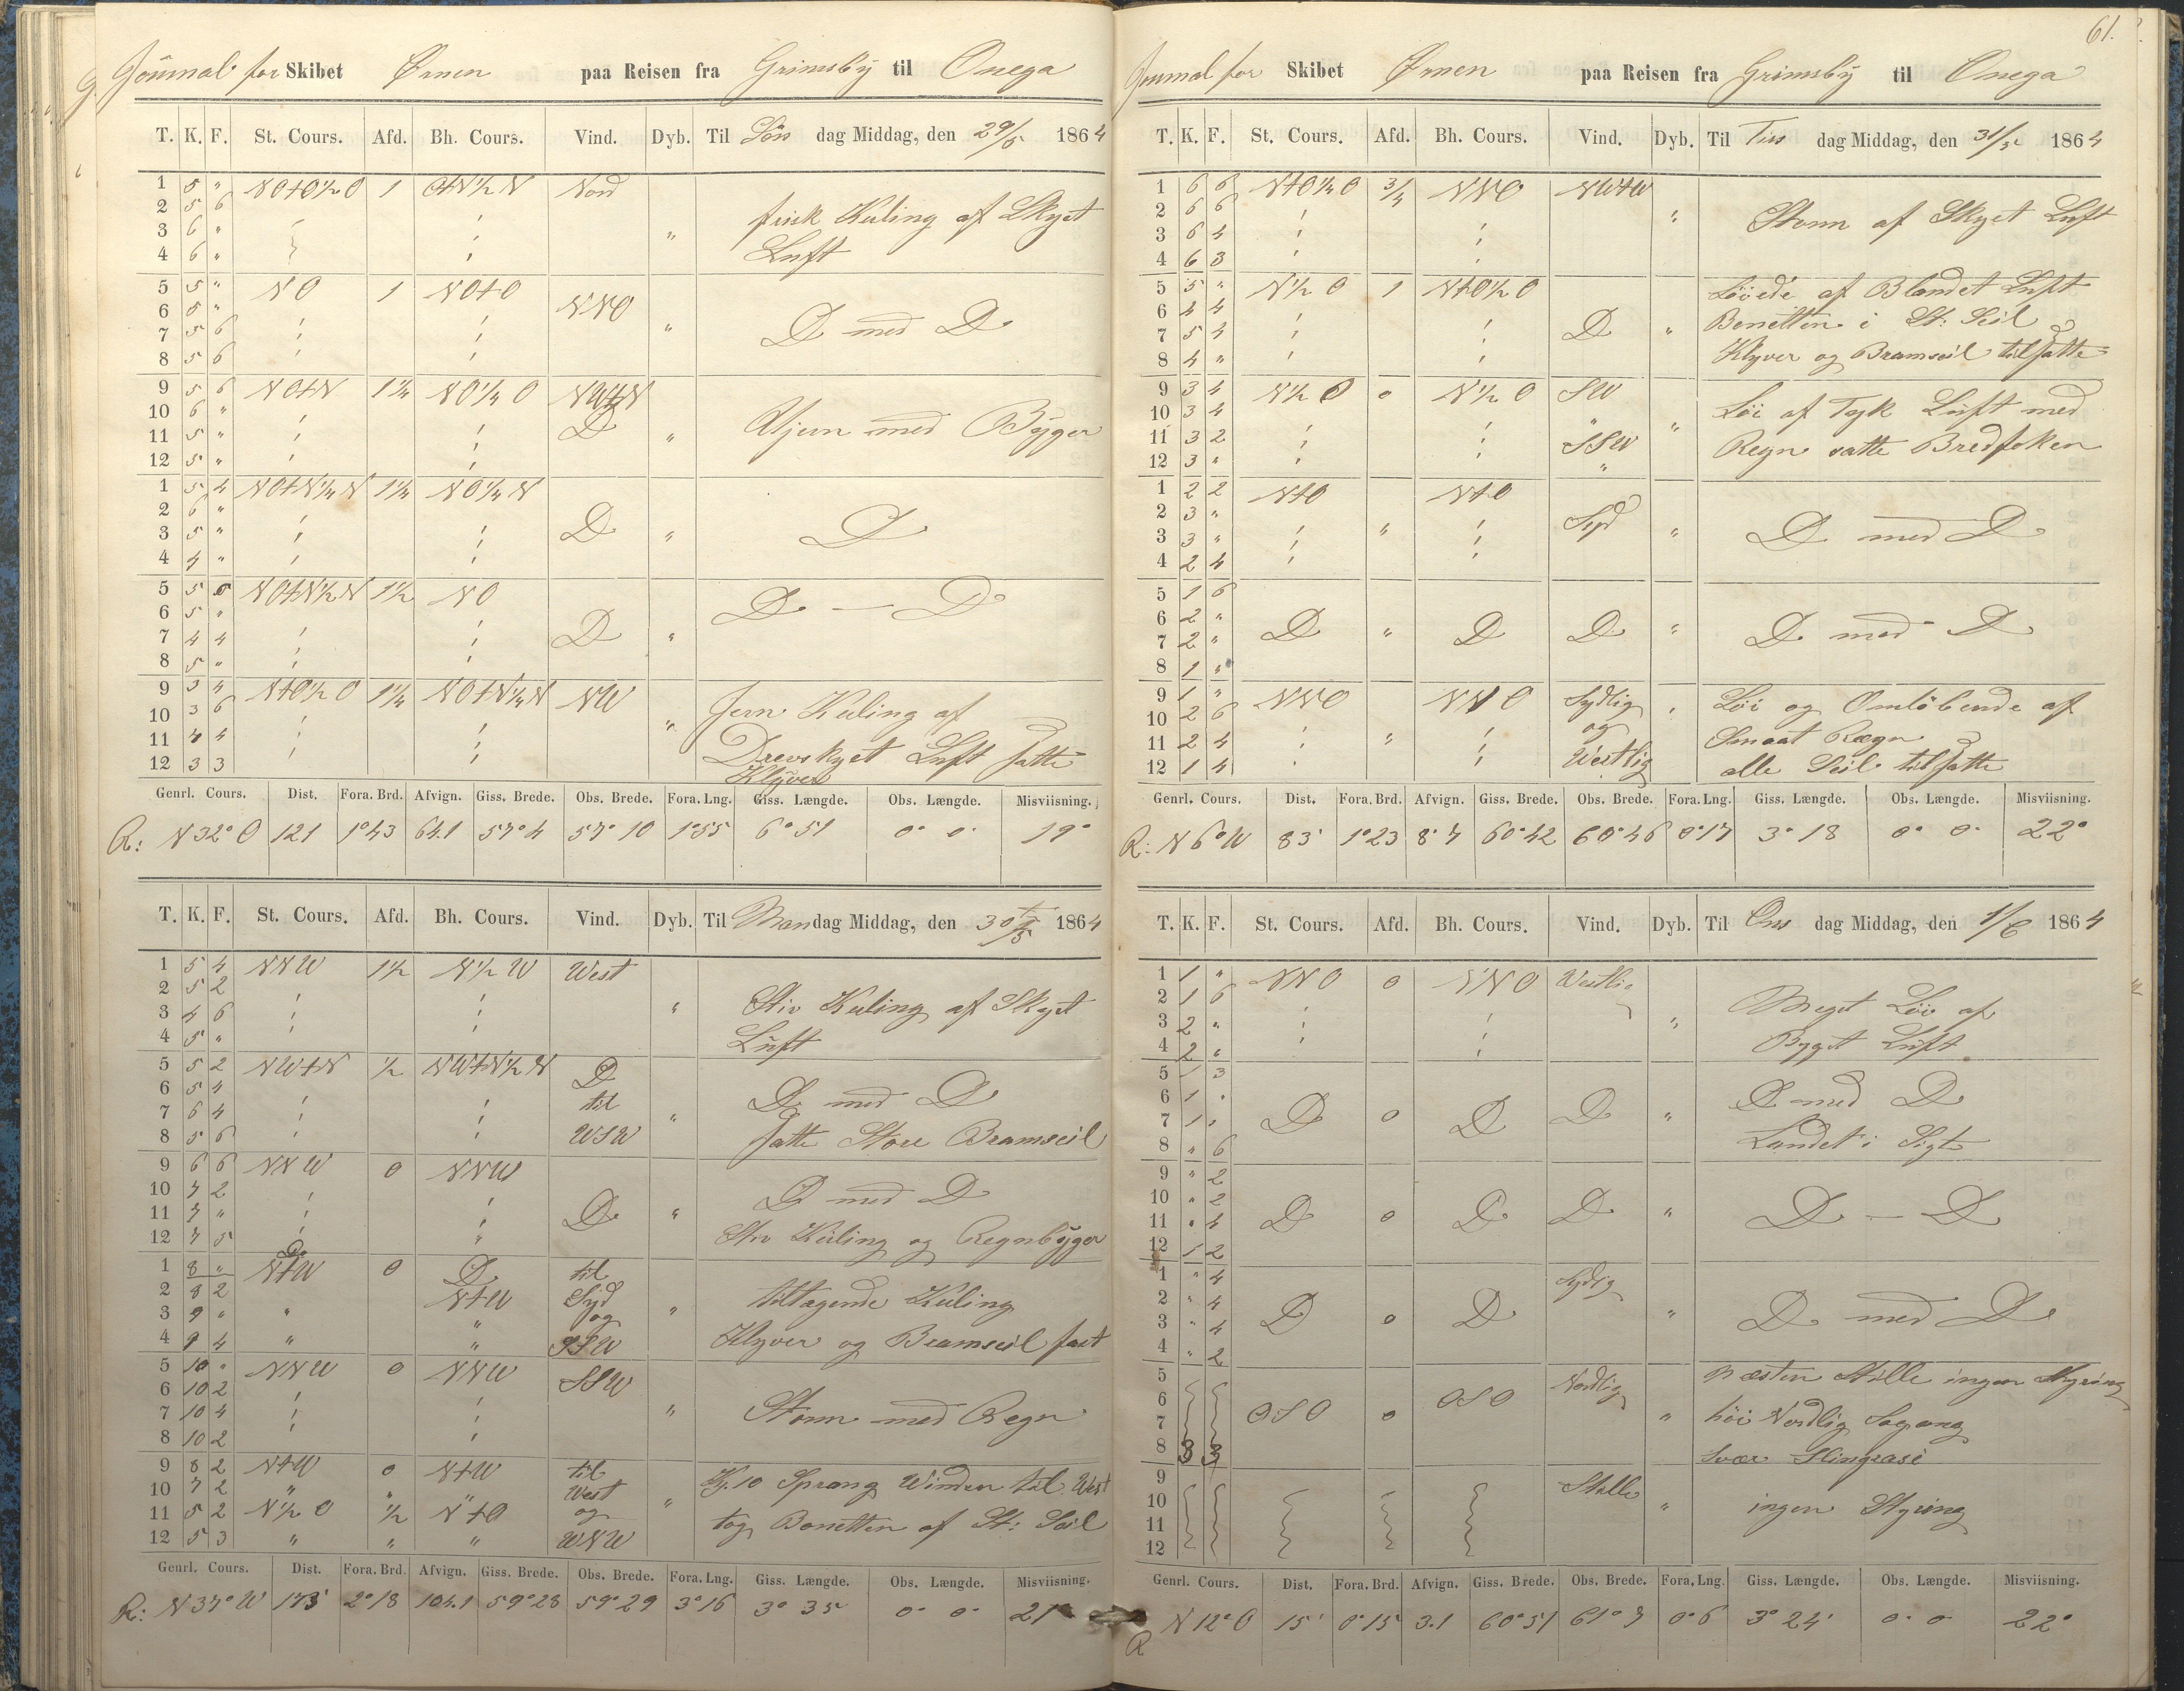 Journal for Skibet Ørnen paa Reisen fra Grimsby til Onega
T. K. F. St. Cours. Afd. Bh. Cours. Vind. Dyb. Til Søn dag Middag, den 29/5 1864
1 5 " NOtO½O 1 OtN½N Nord
2 5 6
3 6 " " frisk Kuling af Skyet
4 6 " Luft
5 5 " NO 1 NOtO
6 5 " NNO
7 5 6 " D med D
8 5 6
9 5 6 NOtN 1¼ NO¼O NWtN
10 6 " D
11 5 " " Ujevn med Byger
12 5 "
1 5 4 NOtN¼N 1¼ NO¼N
2 6 "
3 5 " D " D
4 4 "
5 5 0 NOtN½N 1½ NO D — D
6 5 "
7 4 4 D "
8 5 "
9 3 4 NtO½O 1¼ NOtN¼N NW
10 3 6 " Jevn Kuling af
11 4 4 Drevskyet Luft satte
12 3 3 Klyver
Genrl. Cours. Dist. Fora. Brd. Afvign. Giss. Brede. Obs. Brede. Fora. Lng. Giss. Længde. Obs. Længde. Misviisning.
R: N 32° O 121 1°43 64.1 57°4 57°10 1°55 6°51 0° 0' 19°
T. K. F. St. Cours. Afd. Bh. Cours. Vind. Dyb. Til Mandag Middag, den 30/5 1864
1 5 4 NNW 1½ N½W West
2 5 2
3 4 6 " Stiv Kuling af Skyet
4 5 " Luft
5 5 2 NWtN ½ NWtN½N D
6 5 4 til D med D
7 6 4 "
8 5 6 WSW satte Store Bramseil
9 6 6 NNW 0 NNW
10 7 2 D med D
11 7 " D "
12 7 5 Stiv Kuling og Regnbyger
D
1 8 " NtW 0 D til
2 8 2 NtW Syd " tiltagende Kuling
3 9 " " " og
4 9 4 " " SSW Klyver og Bramseil fast
5 10 " NNW 0 NNW SSW
6 10 2
7 10 4 " Storm med Regn
8 10 2
9 8 2 NtW 0 NtW til Kl. 10 Sprang Winden til West
10 7 2 " " " West "
11 5 2 N½O ½ NtO og tog Bonetten af St: Seil
12 5 3 " " " WNW
Genrl. Cours. Dist. Fora. Brd. Afvign. Giss. Brede. Obs. Brede. Fora. Lng. Giss. Længde. Obs. Længde. Misviisning.
R: N 37° W 173' 2°18 104.1 59°28 59°29 3°16 3° 35 0° 0' 21°
61.
Journal for Skibet Ørnen paa Reisen fra Grimsby til Onega
T. K. F. St. Cours. Afd. Bh. Cours. Vind. Dyb. Til Tirs dag Middag, den 31/5 1864
1 6 6 NtO¼O ¾ NNO NWtW
2 6 6 " Storm af Skyet Luft
3 6 4
4 6 3
5 5 " N½O 1 NtO½O Løiede af Blandet Luft
6 4 4 Bonetten i St: Seil
7 5 4 D "
8 4 " Klyver og Bramseil tilsatte
9 3 4 N½O 0 N½O SW
10 3 4 " " Løi af Tyk Luft med
11 3 2 SSW Regn satte Bredfoken
12 3 " "
1 2 2 NtO NtO
2 3 " Syd
3 3 " " " D med D
4 2 4
5 1 6
6 2 " D " D D " D med D
7 2 "
8 1 "
9 1 " NNO NNO Sydlig " Løi og Omløbende af
10 2 6 og Smaat Regn
11 2 4 "
12 1 4 Westlig alle Seil tilsatte
Genrl. Cours. Dist. Fora. Brd. Afvign. Giss. Brede. Obs. Brede. Fora. Lng. Giss. Længde. Obs. Længde. Misviisning.
R: N 6° W 83' 1°23 8°7 60°42 60°46 0°17 3° 18 0° 0' 22°
T. K. F. St. Cours. Afd. Bh. Cours. Vind. Dyb. Til Ons dag Middag, den 1/6 1864
1 1 " NNO 0 NNO Westlig
2 1 6 Meget Løi af
3 2 " "
4 2 " Byget Luft
5 1 3
6 1 " D med D
7 1 " D 0 D D "
8 " 6 Landet i Sigte
9 " 2
10 " 2 D 0 D D " D — D
11 " 4
12 1 2
1 " 4 Sydlig
2 " 4
3 " 4 D 0 D " D med D
4 " 2
5 Næsten Stille ingen Styring
6 OSO Nordlig
7 OSO 0 " høi Nordlig Søgang
8 3 3 svær Slingrasi
9 Stille
10 " ingen Styring
11
12
Genrl. Cours. Dist. Fora. Brd. Afvign. Giss. Brede. Obs. Brede. Fora. Lng. Giss. Længde. Obs. Længde. Misviisning.
R N 12° O 15' 0°15 3.1 60°51 61°7 0°6 3° 24' 0° 0 22°